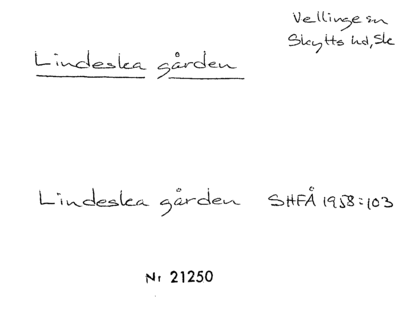 Vellinge sn
Skytts hd, Sk
Lindeska gården
Lindeska gården SHFÅ 1958:103
Nr 21250